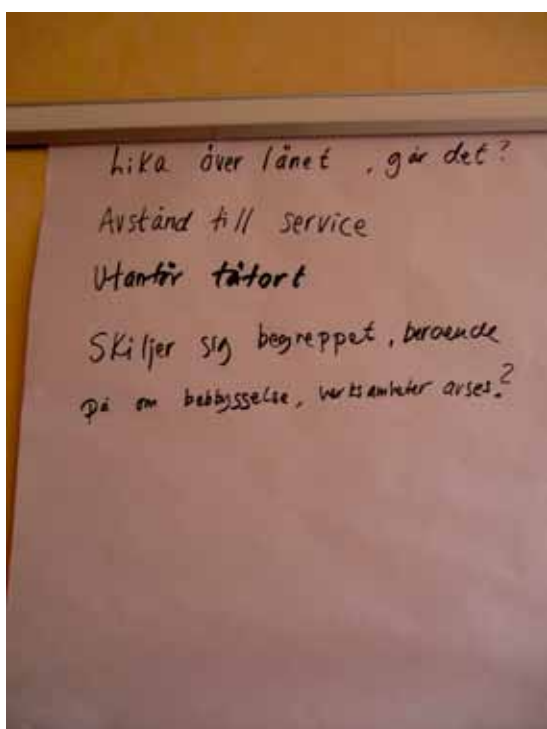 Lika över länet, går det?
Avstånd till service
Utanför tätort
Skiljer sig begreppet, beroende
på om bebbysselse, verksamheter avses?